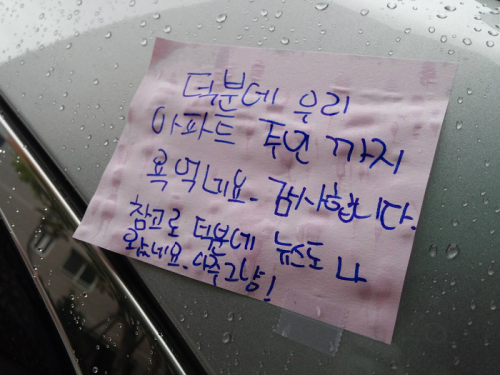 덕분에 우리
아파트 주민 까지
욕먹네요. 감사합니다.
참고로 덕분에 뉴스도 나
왔네요. 아주그냥!